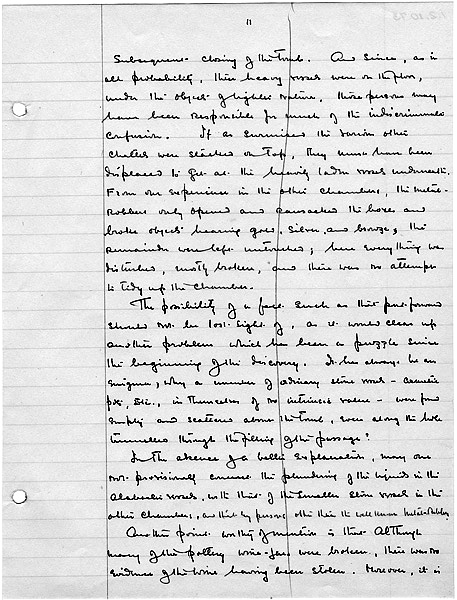 11
subsequent closing of the tomb. And since, as is
all probability, these heavy vessels were on the floor,
under the objects of lighter nature, these persons may
have been responsible for much of the indiscriminate
confusion. If as surmised the various other
chattels were stacked on top, they must have been
displaced to get at the heavily laden vessels underneath.
From our experience in the other chambers, the metal-
robbers only opened and ransacked the boxes and
broke objects bearing gold, silver, and bronze; the
remainder were left untouched; here everything was
disturbed, mostly broken, and there was no attempt
to tidy up the chamber.
The possibility of a fact such as that put forward
should not be lost sight of, as it would clear up
another problem which has been a puzzle since
the beginning of the discovery. It has always been an
enigma, why a number of ordinary stone vessels – cosmetic
pots, etc., in themselves of no intrinsic value – were found
empty and scattered about the tomb, even along the hole
tunnelled through the filling of the passage?
In the absence of a better explanation, may one
not provisionally connect the plundering of the liquids in the
alabaster vessels, with that of the smaller stone vessels in the
other chambers, and that by persons other than the well known metal-robbers.
Another point worthy of mention is that although
many of the pottery wine-jars were broken, there was no
evidence of the wine having been stolen. Moreover, it is